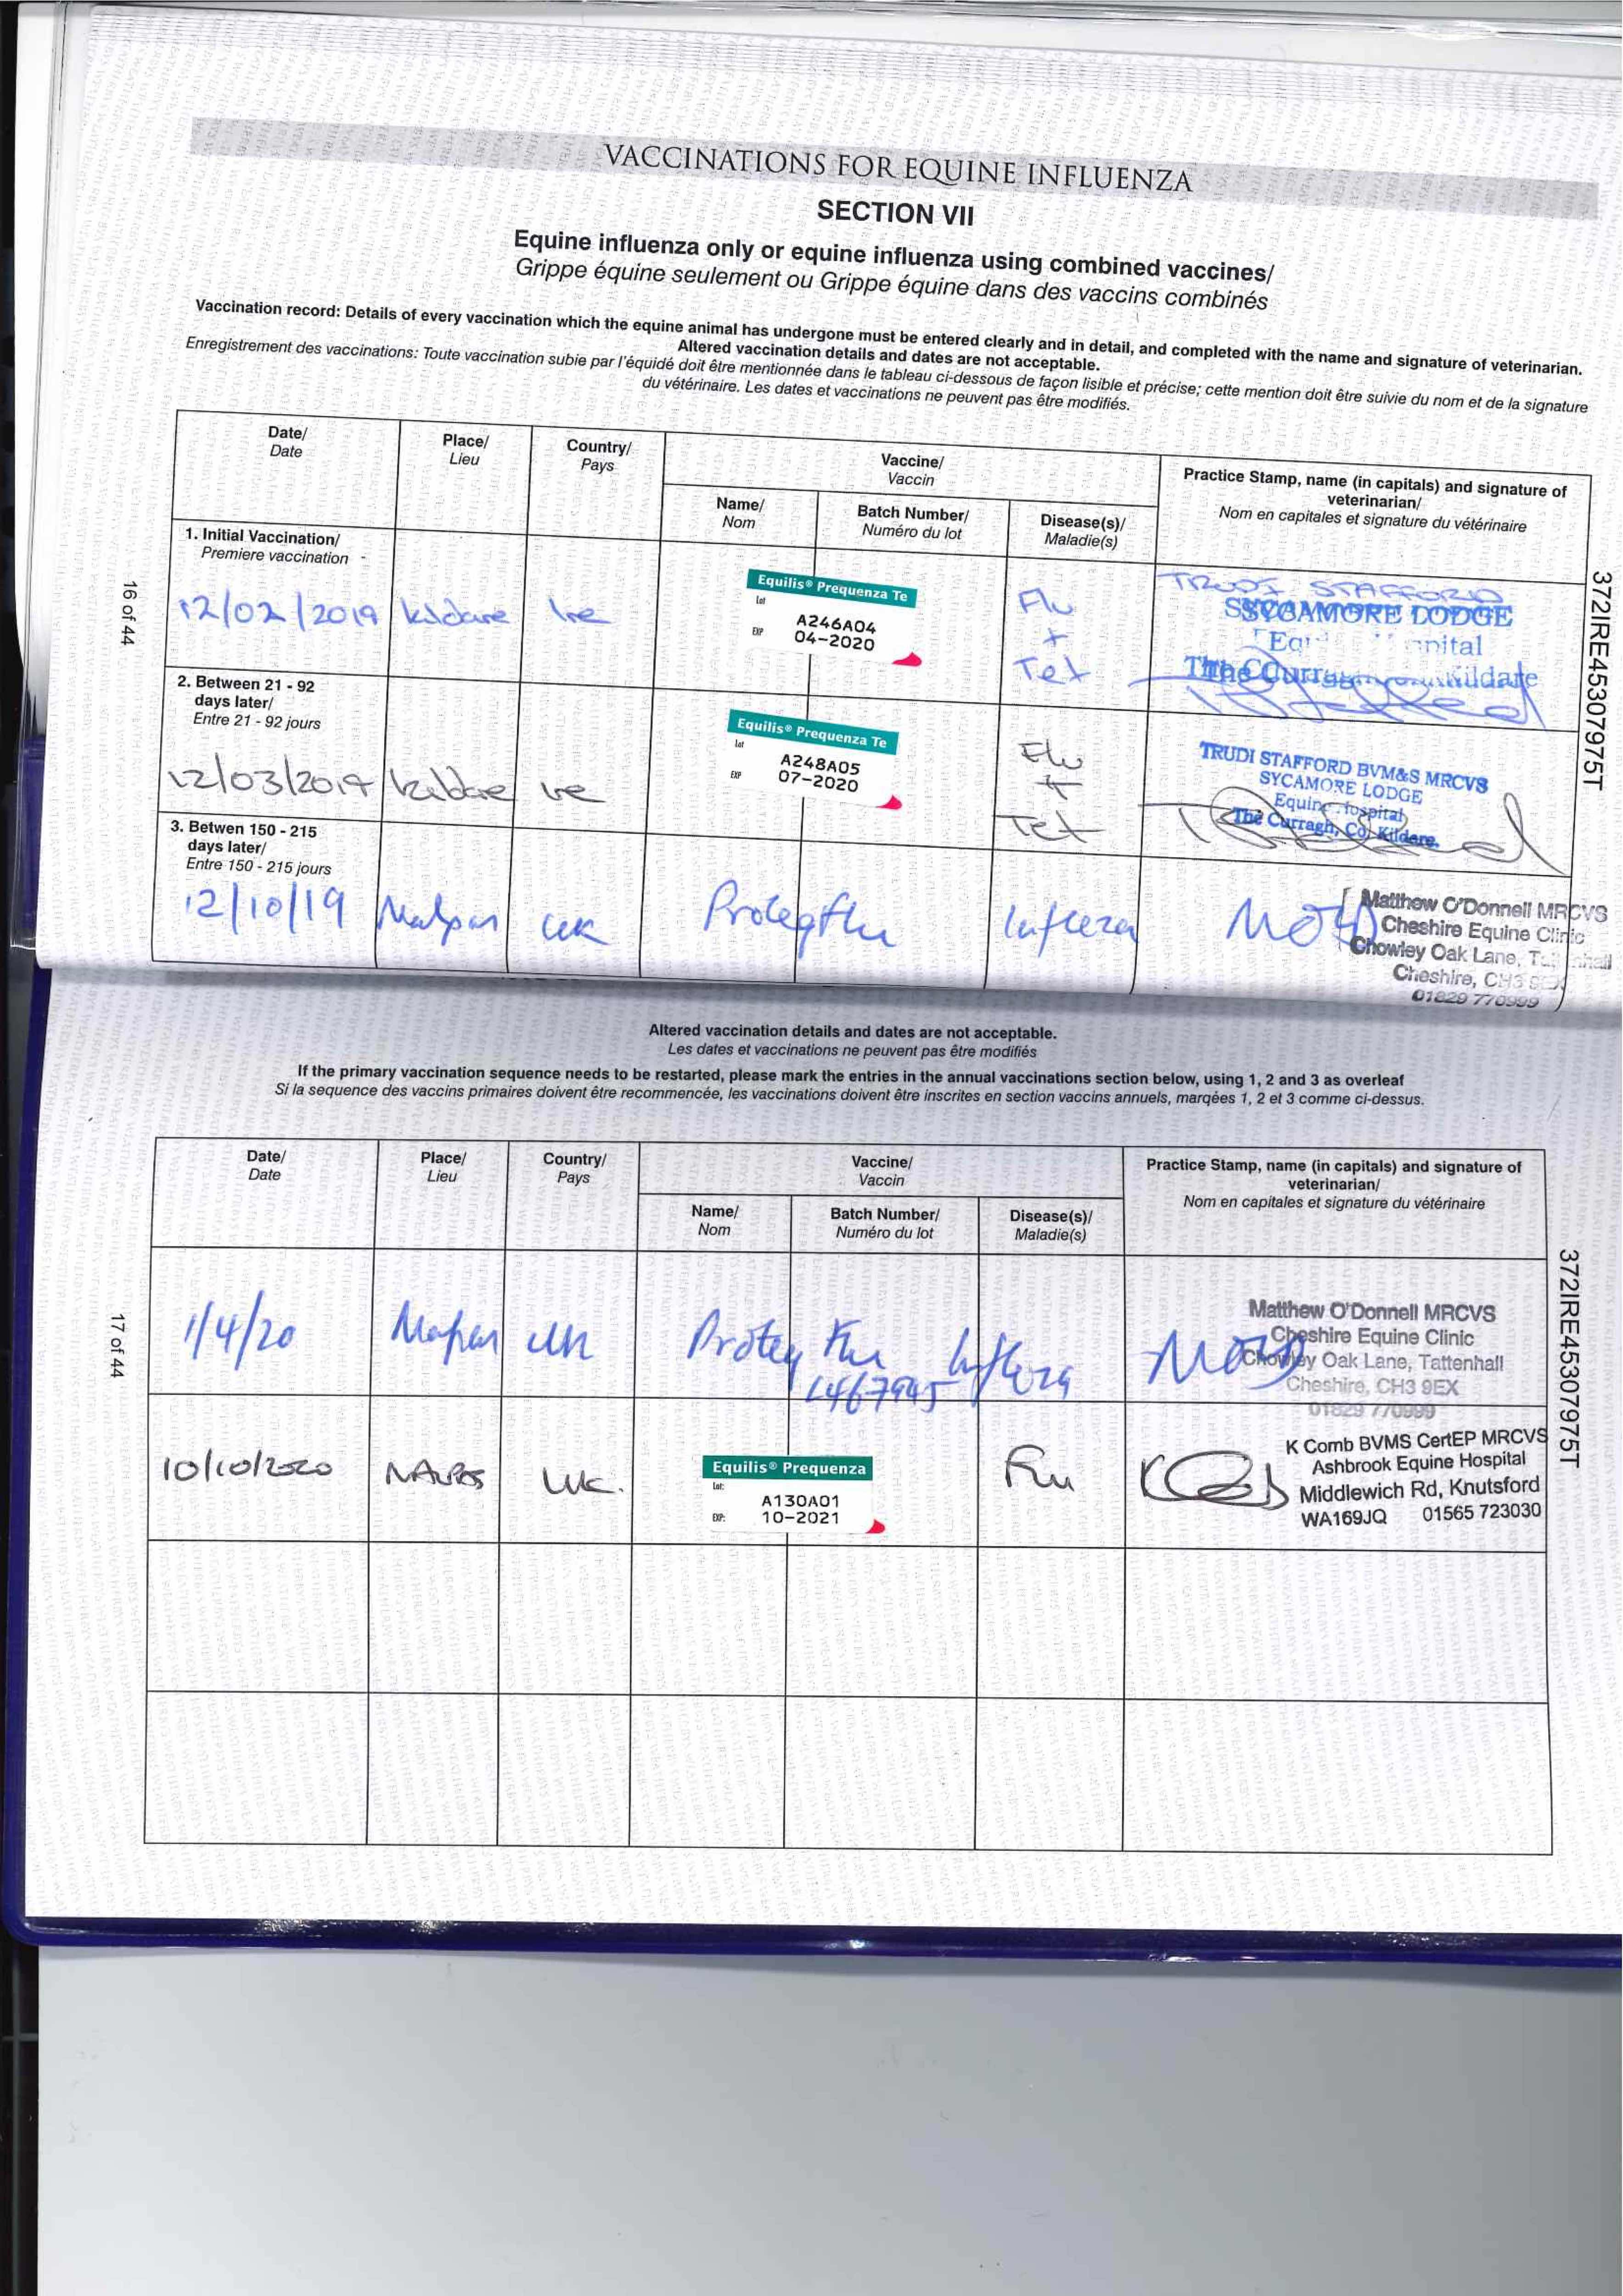 VACCINATIONS FOR EQUINE INFLUENZA
SECTION VII
Equine influenza only or equine influenza using combined vaccines/
Grippe équine seulement ou Grippe équine dans des vaccins combinés
Vaccination record: Details of every vaccination which the equine animal has undergone must be entered clearly and in detail, and completed with the name and signature of veterinarian.
Altered vaccination details and dates are not acceptable.
Enregistrement des vaccinations: Toute vaccination subie par l'équidé doit être mentionnée dans le tableau ci-dessous de façon lisible et précise; cette mention doit être suivie du nom et de la signature
du vétérinaire. Les dates et vaccinations ne peuvent pas être modifiés.
Date/
Date
Place/
Lieu
Country/
Pays
Vaccine/
Vaccin
Name/
Nom
Batch Number/
Numéro du lot
Disease(s)/
Maladie(s)
Practice Stamp, name (in capitals) and signature of
veterinarian/
Nom en capitales et signature du vétérinaire
1. Initial Vaccination/
Premiere vaccination
12/02/2019 Kildare Ire
Equilis® Prequenza Te
Lot
A246A04
EXP 04-2020
Flu
+
Tet
TRUDI STAFFORD
SYCAMORE LODGE
The Curragh Kildare
2. Between 21 - 92
days later/
Entre 21 - 92 jours
12/03/2019 Kildare Ire
Equilis® Prequenza Te
Lot
A248A05
EXP 07-2020
Flu
+
Tet
TRUDI STAFFORD BVM&S MRCVS
SYCAMORE LODGE
Equine Hospital
The Curragh, Co. Kildare.
3. Betwen 150 - 215
days later/
Entre 150 - 215 jours
12/10/19 Malpas UK
ProteqFlu
Matthew O'Donnell MRCVS
Cheshire Equine Clinic
Chowley Oak Lane,
Cheshire, CH3
01829 770999
16 of 44
372IRE45307975T
Altered vaccination details and dates are not acceptable.
Les dates et vaccinations ne peuvent pas être modifiés
If the primary vaccination sequence needs to be restarted, please mark the entries in the annual vaccinations section below, using 1, 2 and 3 as overleaf
Si la sequence des vaccins primaires doivent être recommencée, les vaccinations doivent être inscrites en section vaccins annuels, marqées 1, 2 et 3 comme ci-dessus.
Date/
Date
Place/
Lieu
Country/
Pays
Vaccine/
Vaccin
Name/
Nom
Batch Number/
Numéro du lot
Disease(s)/
Maladie(s)
Practice Stamp, name (in capitals) and signature of
veterinarian/
Nom en capitales et signature du vétérinaire
1/4/20 Malpas UK
Proteq Flu
L467945
Matthew O'Donnell MRCVS
Cheshire Equine Clinic
Chowley Oak Lane, Tattenhall
Cheshire, CH3 9EX
01829 770999
10/10/2020 MALPAS UK.
Equilis® Prequenza
Lot:
A130A01
EXP: 10-2021
Flu
K Comb BVMS CertEP MRCVS
Ashbrook Equine Hospital
Middlewich Rd, Knutsford
WA169JQ 01565 723030
17 of 44
372IRE45307975T